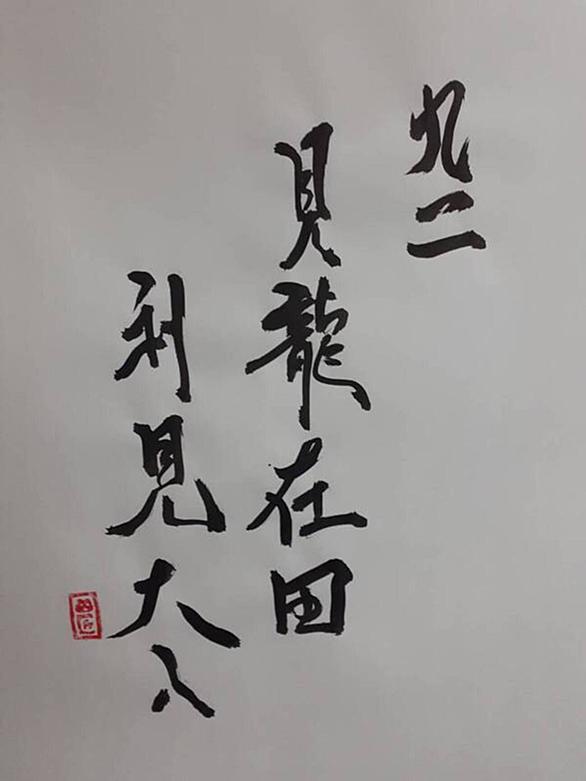 九二
見龍在田
利見大人